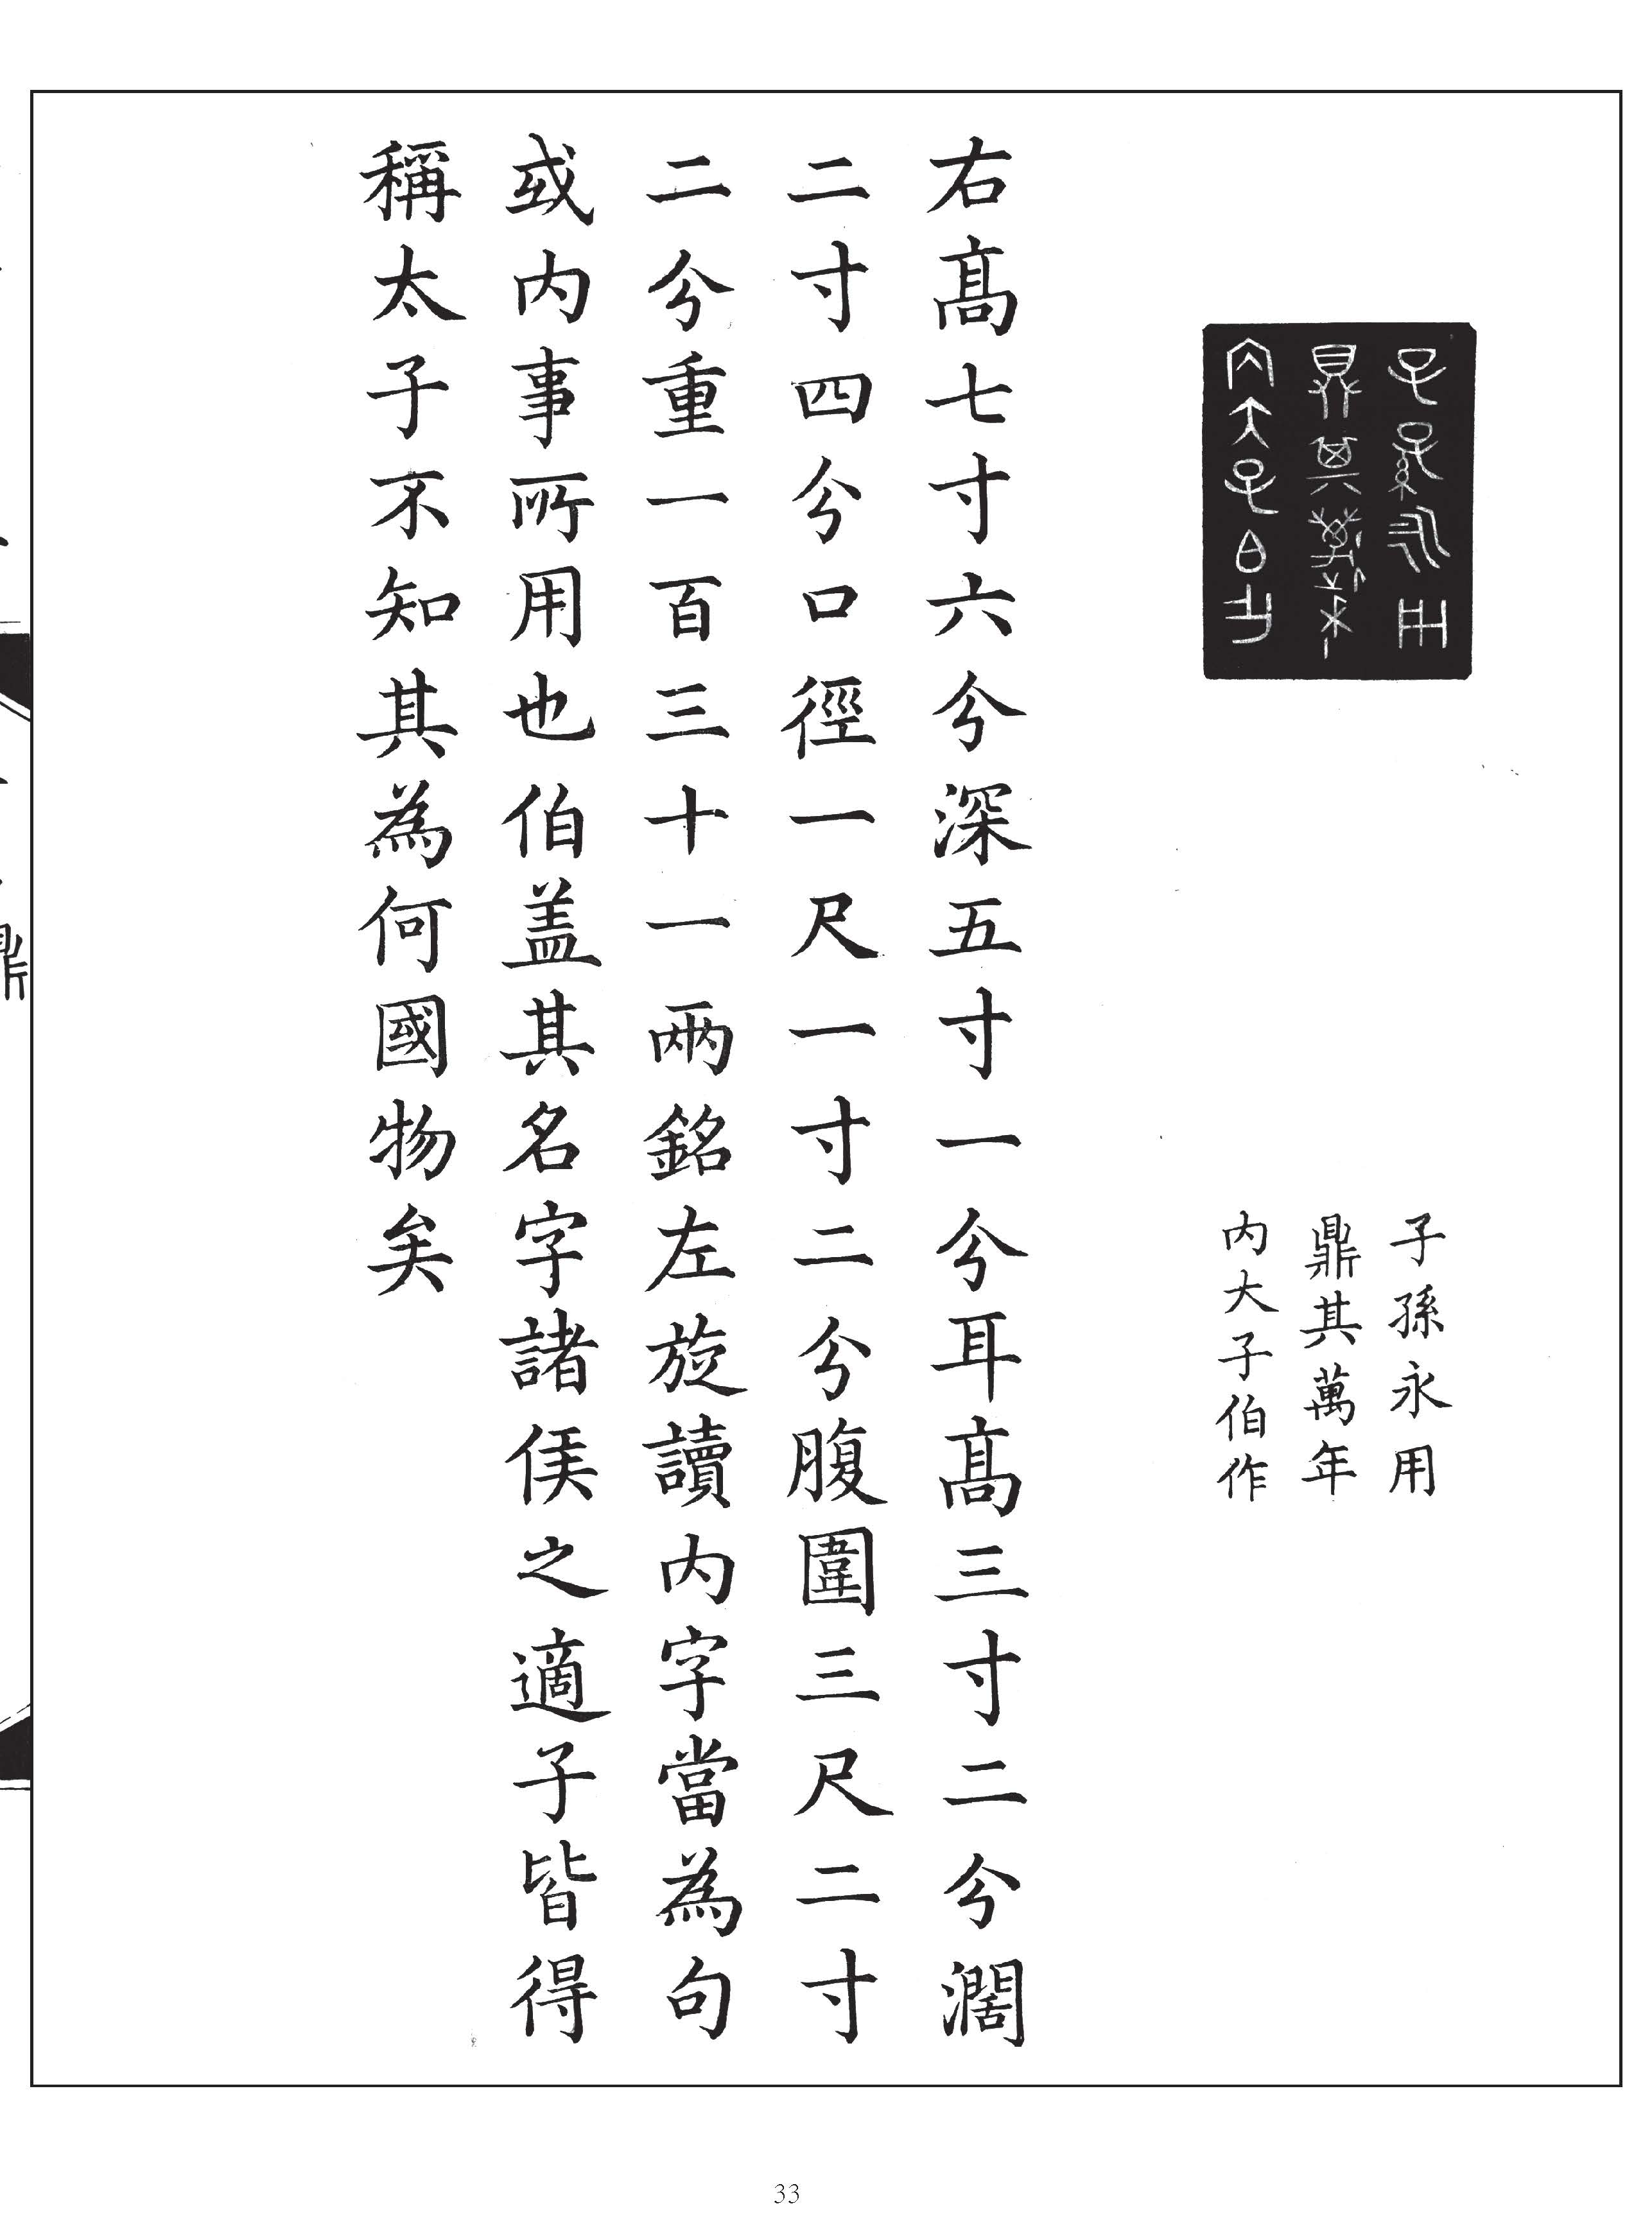 子孫永用
鼎其萬年
内大子伯作
子孫永用
鼎其萬年
内大子伯作
右高七寸六分深五寸一分耳高三寸二分濶
二寸四分口徑一尺一寸二分腹圍三尺二寸
二分重一百三十一兩銘左旋讀内字當為句
或内事所用也伯盖其名字諸侯之適子皆得
稱太子不知其為何國物矣
鼎
33